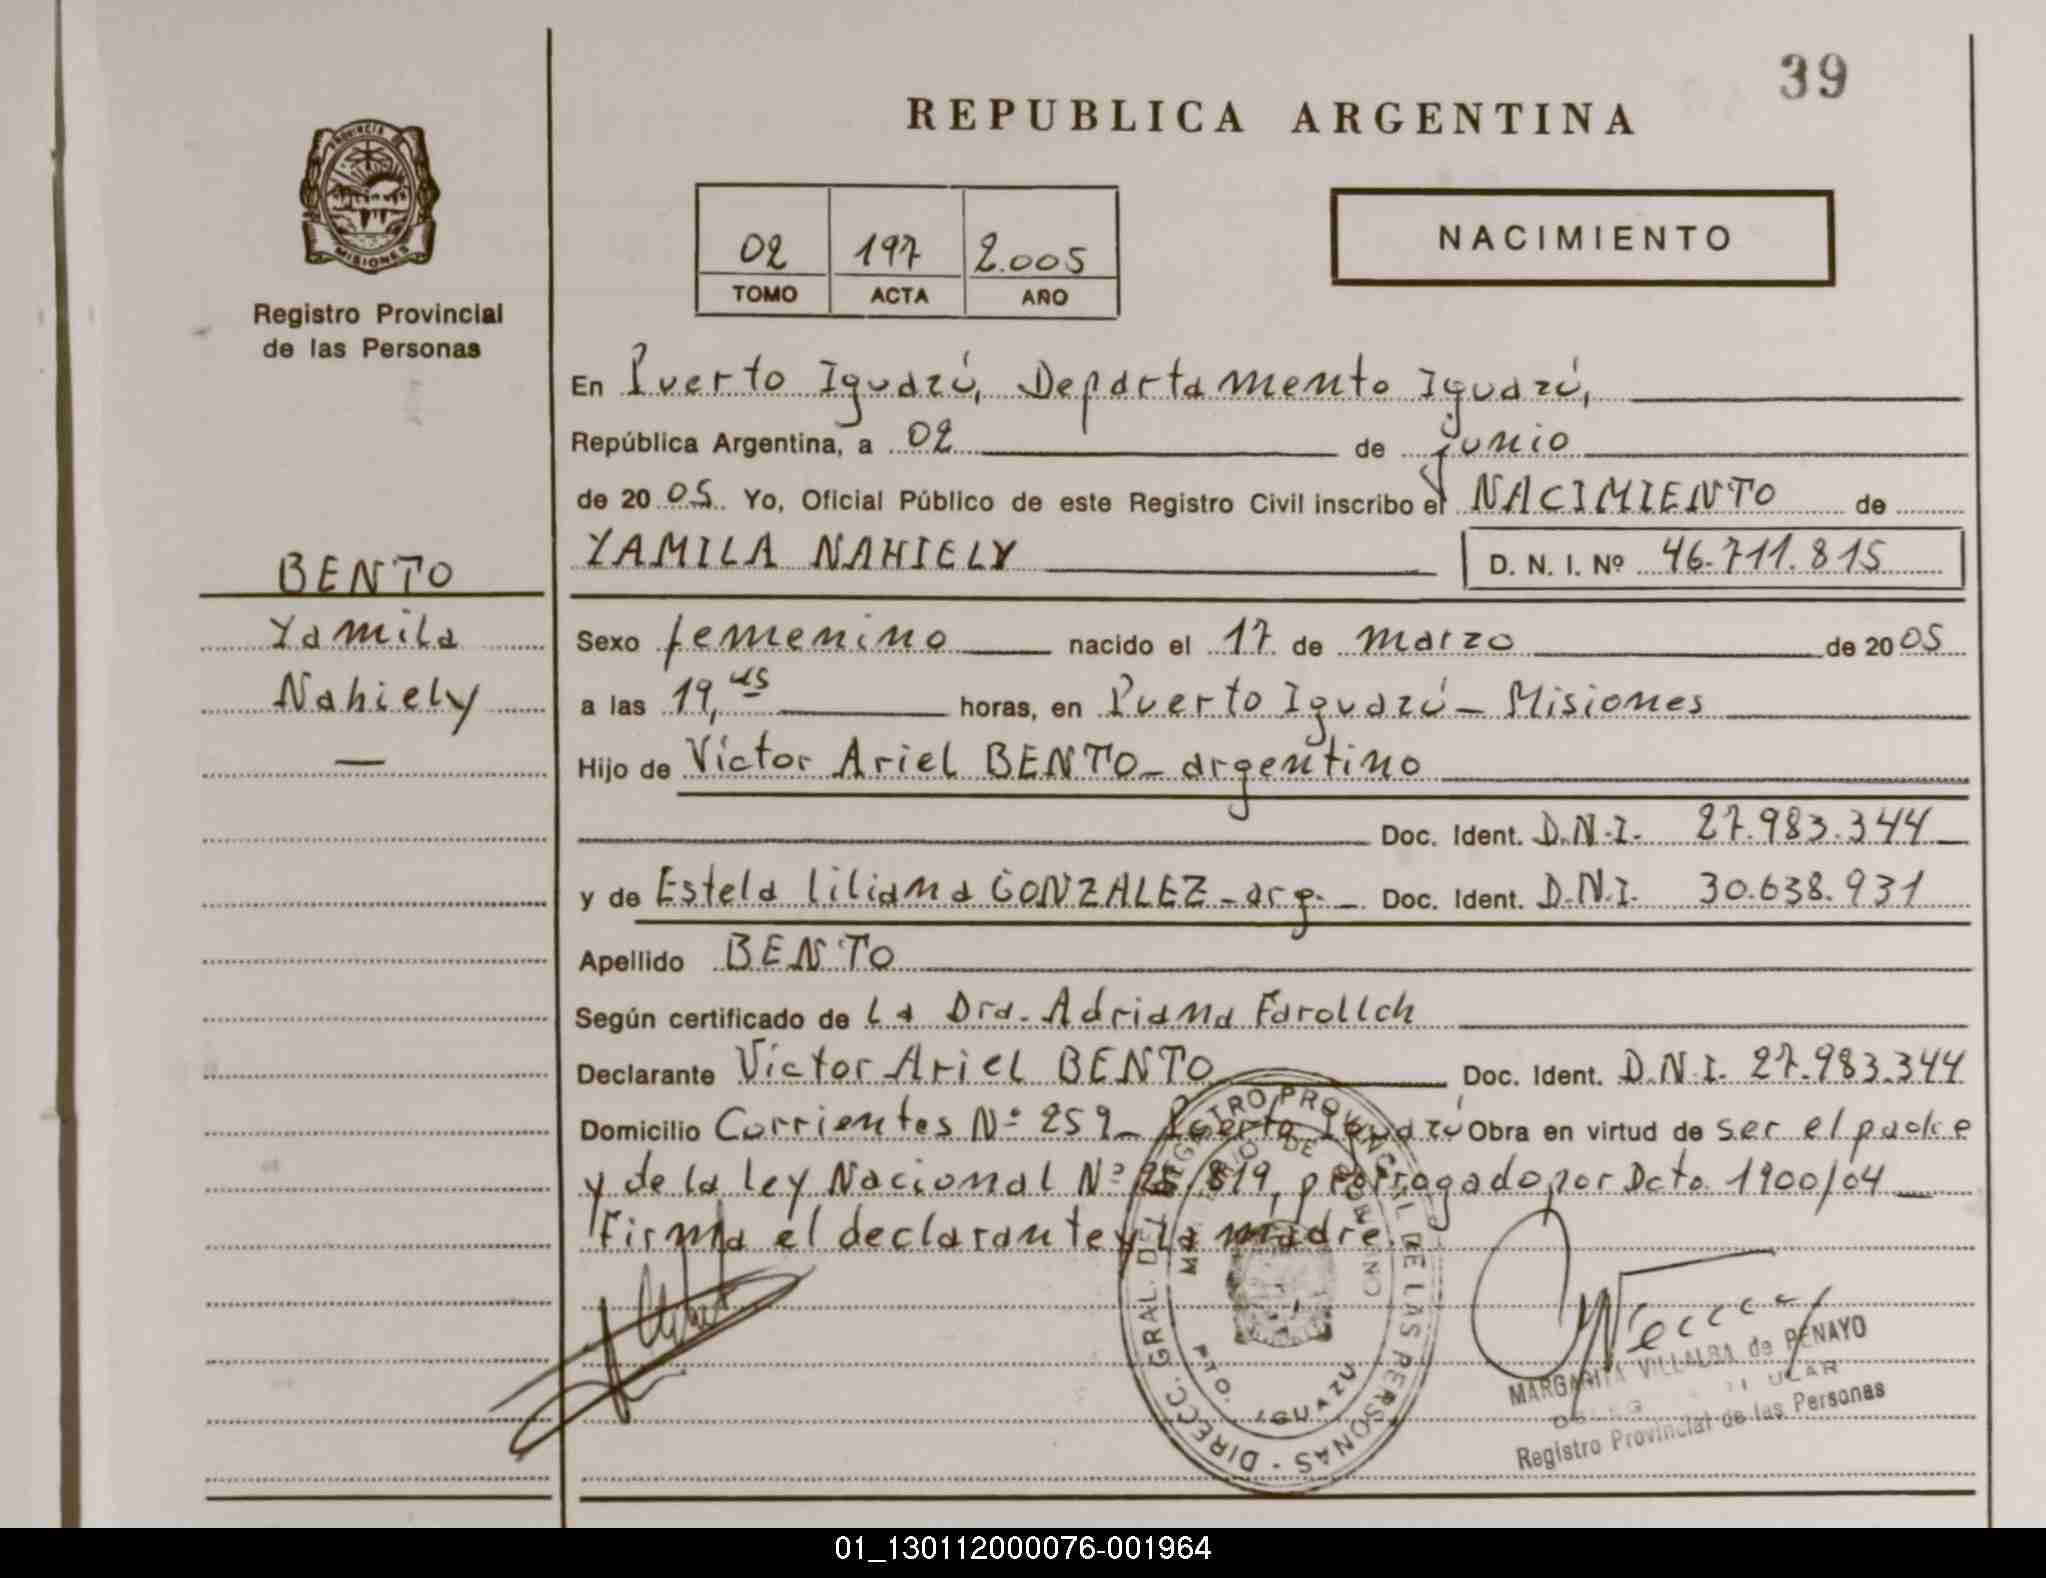 39
REPUBLICA ARGENTINA
PROVINCIA DE
MISIONES
Registro Provincial
de las Personas
02 197 2.005
TOMO ACTA AÑO
NACIMIENTO
En Puerto Iguazú, Departamento Iguazú,
República Argentina, a 02 de junio
de 2005. Yo, Oficial Público de este Registro Civil inscribo el NACIMIENTO de
YAMILA NAHIELY D. N. I. Nº 46.711.815
BENTO
Yamila
Nahiely
—
Sexo femenino nacido el 17 de marzo de 2005
a las 19,45 horas, en Puerto Iguazú - Misiones
Hijo de Víctor Ariel BENTO - argentino
Doc. Ident. D.N.I. 27.983.344
y de Estela Liliana GONZALEZ - arg. - Doc. Ident. D.N.I. 30.638.931
Apellido BENTO
Según certificado de La Dra. Adriana Farollch
Declarante Víctor Ariel BENTO Doc. Ident. D.N.I. 27.983.344
Domicilio Corrientes Nº 259 - Puerto Iguazú Obra en virtud de ser el padre
y de la ley Nacional Nº 25/819, prorrogado por Dcto. 1900/04
Firma el declarante y la madre.
DIRECC. GRAL. DEL REGISTRO PROVINCIAL DE LAS PERSONAS -
MINISTERIO DE GOBIERNO
PTO. IGUAZU
MARGARITA VILLALBA de PENAYO
Registro Provincial de las Personas
01_130112000076-001964